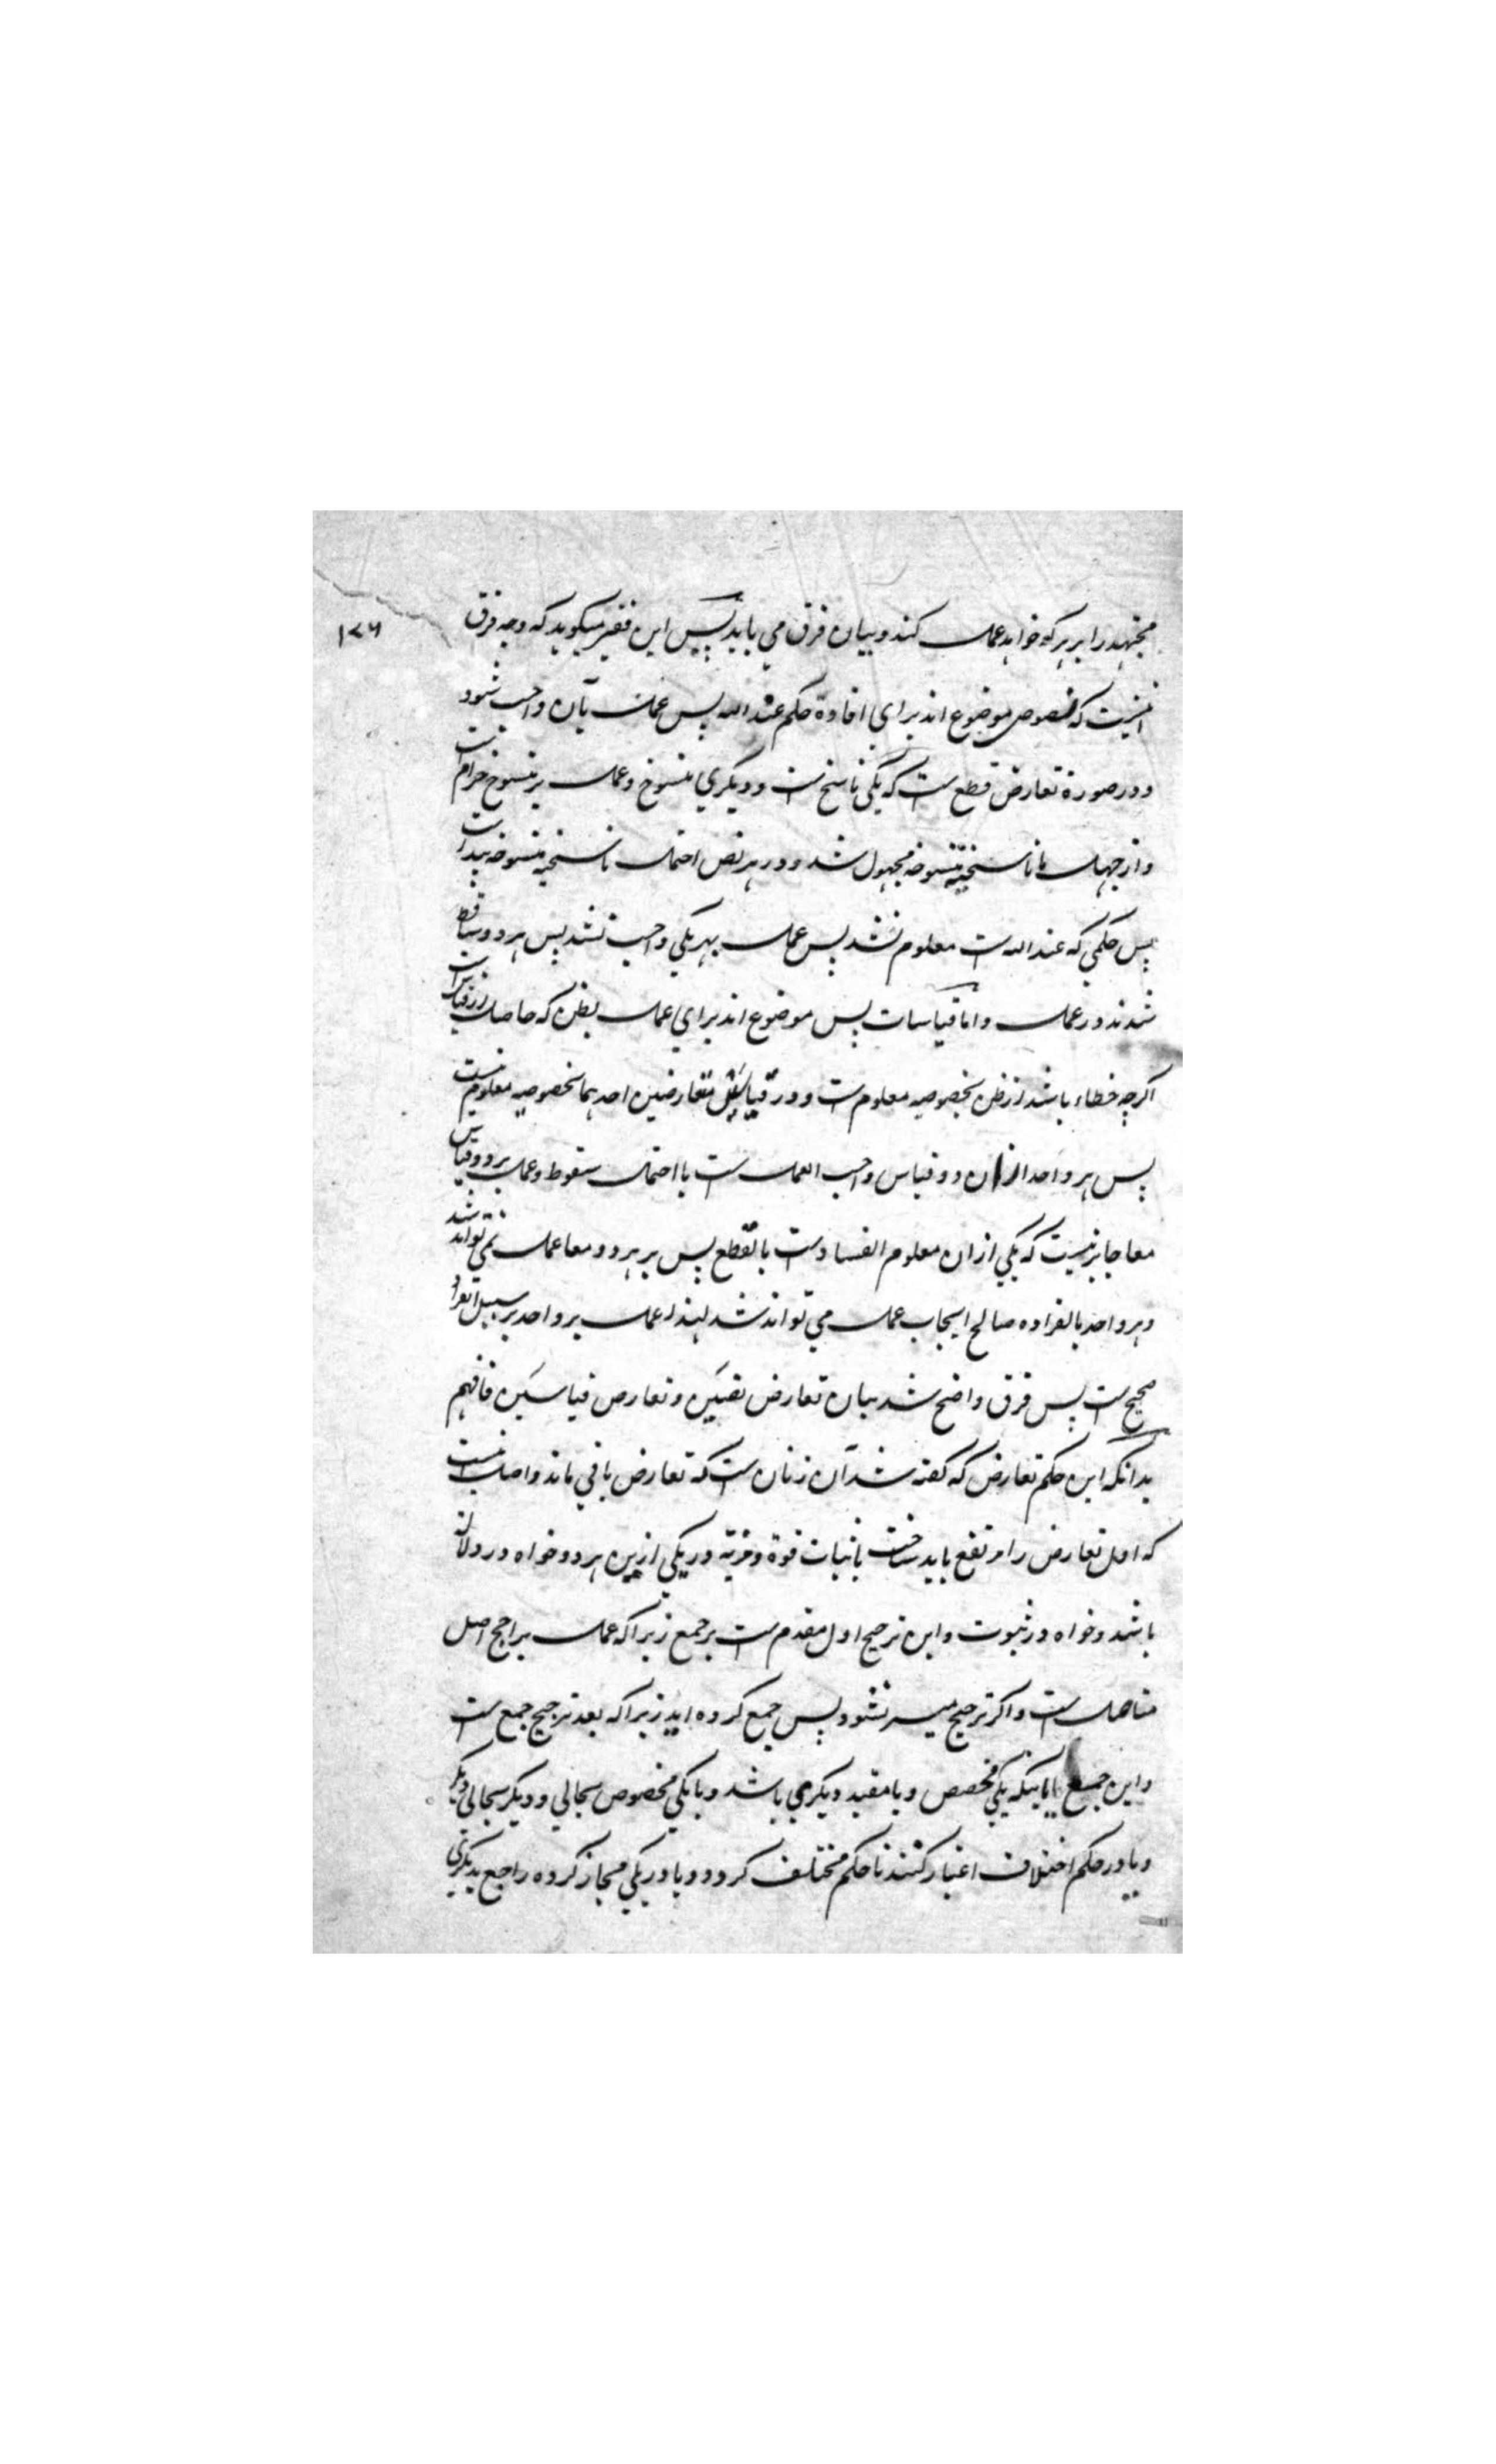 مجتهد را بر هر که خواهد عمل کند و بیان فرق می باید پس این فقیر میکوید که وجه فرق
۱۲۶
اینست که نصوص موضوع اند برای افادهٔ حکم عند الله پس عمل بآن واجب شود
و در صورة تعارض قطع ست که یکی ناسخ ست و دیکری منسوخ و عمل بر منسوخ حرام ست
و از جهل ما ناسخیة منسوخه مجهول شد و در هر نص احتمال ناسخیة منسوخه پیدا ست
پس حکمی که عند الله ست معلوم نشد پس عمل بهر یکی واجب نشد پس هر دو ساقط
شدند در عمل و اما قیاسات پس موضوع اند برای عمل بظن که حاصل از قیاس ست
اکرچه خطاء باشد از ظن بخصوصه معلوم ست و در قیاس متعارضین احدهما بخصوصه معلوم نیست
پس هر واحد ازان دو قیاس واجب العمل ست با احتمال سقوط و عمل بر دو قیاس
معا جایز نیست که یکی ازان معلوم الفساد ست بالقطع پس بر هر دو معا عمل نمی تواند شد
و هر واحد بانفراده صالح ایجاب عمل می تواند شد لهذا عمل بر واحد بر سبیل انفراد
صحیح ست پس فرق واضح شد بیان تعارض نصین و تعارض قیاسین فافهم
بدانکه این حکم تعارض که کفته شد آن زمان ست که تعارض باقی ماند و اصل اینست
که اول تعارض را مرتفع باید ساخت باثبات قوة و مزیة در یکی ازین هر دو خواه در دلالة
باشد و خواه در ثبوت و این ترجیح اول مقدم ست بر جمع زیرا که عمل براجح اصل
متاصل ست و اکر ترجیح میسر نشود پس جمع کرده اید زیرا که بعد ترجیح جمع ست
و این جمع یا باینکه یکی مخصص و یا مقید دیکری باشد و یا یکی مخصوص بحالی و دیکر بحالی دیکر
و یا در حکم اختلاف اعتبار کنند تا حکم مختلف کردد و یا در یکی مجاز کرده راجع بدیکری